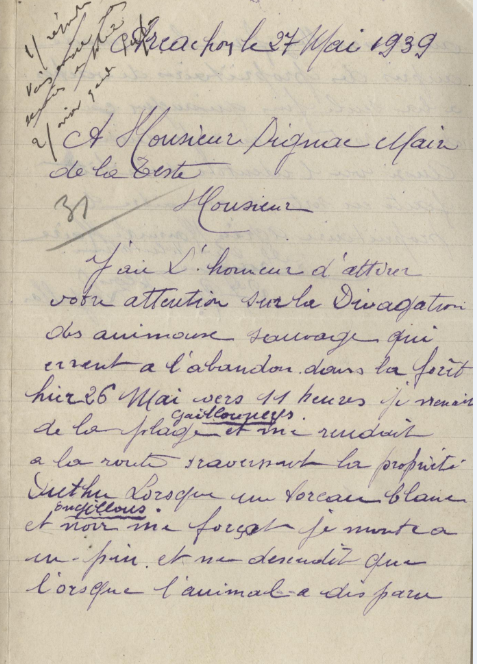 Arcachon le 27 Mai 1939
1/
2/
A Monsieur Dignac Mair
de la Teste
31
Monsieur
J'ai L'honneur d'attirer
votre attention sur la Divagation
des animaux sauvage qui
errent a l'abandon dans la forêt
hier 26 Mai vers 11 heures je venais
Gaillouneys
de la plage et me rendait
a la route traversent la proprieté
Duthu Lorsque un toreau blanc
et noir me forçat je monte a
un pin et ne desendit que
l'orsque l'animal a disparu